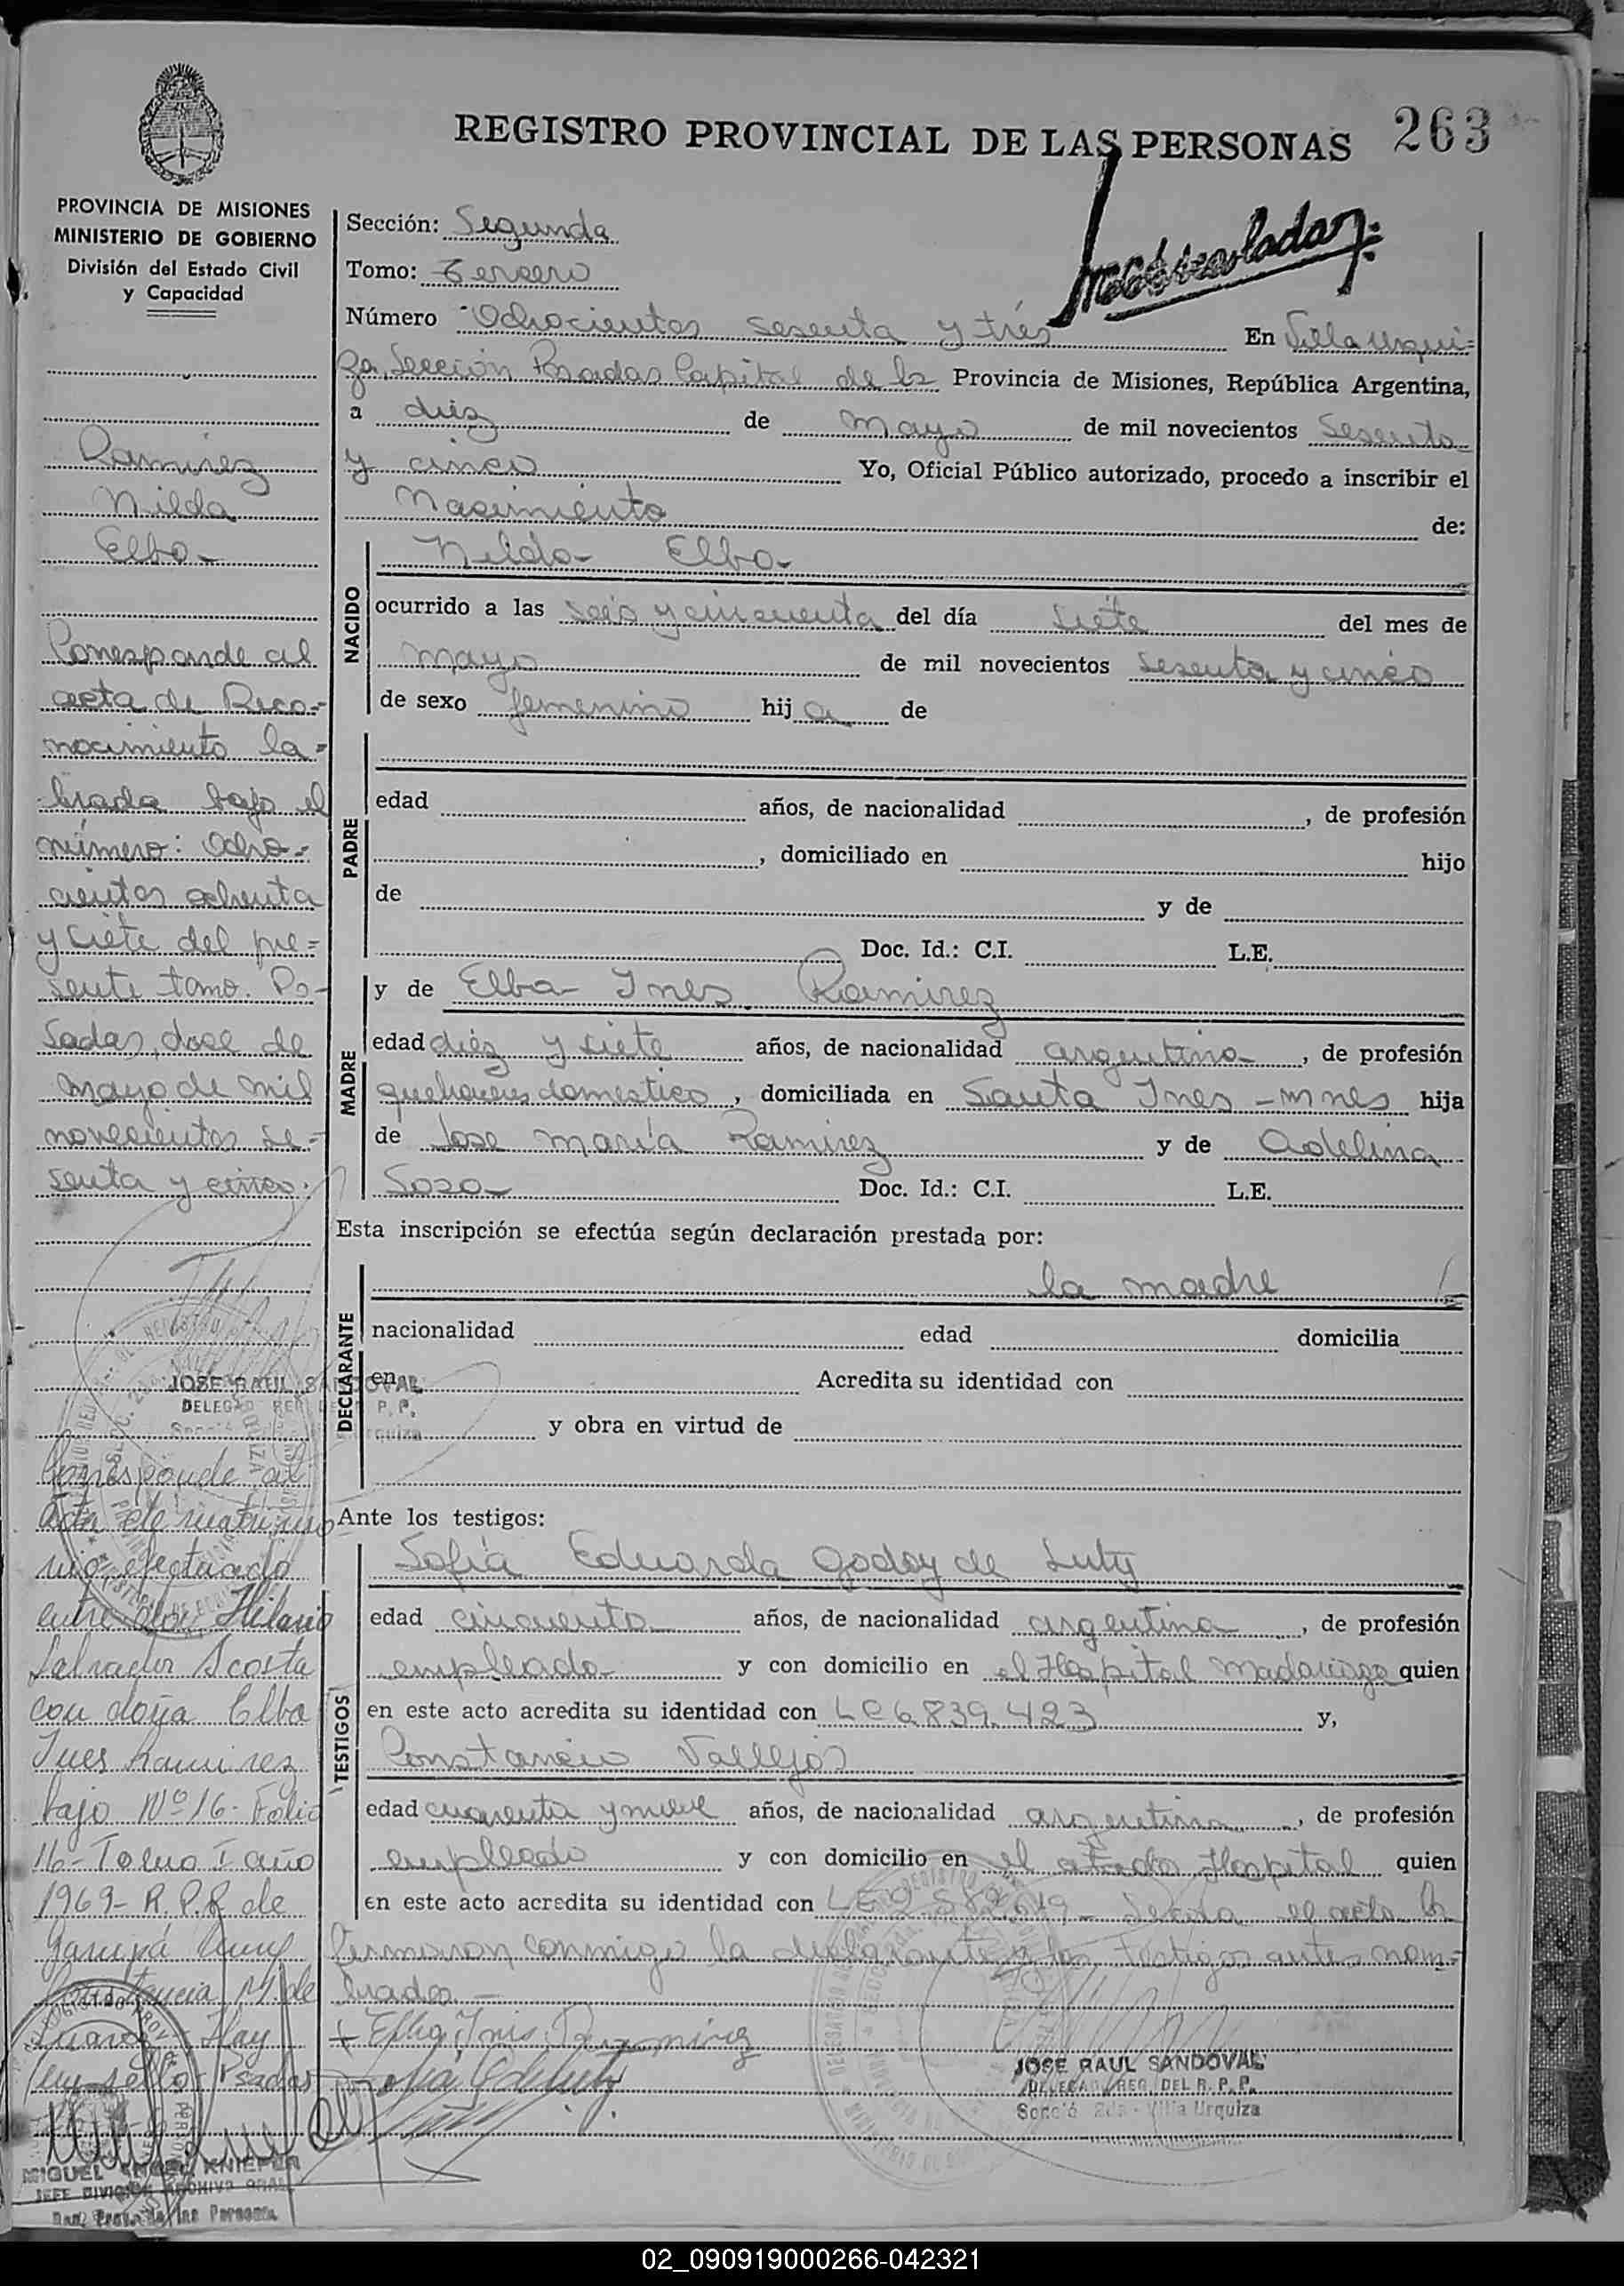 REGISTRO PROVINCIAL DE LAS PERSONAS 263
PROVINCIA DE MISIONES
MINISTERIO DE GOBIERNO
División del Estado Civil
y Capacidad
Ramirez
Nilda
Elba
Corresponde al
acta de Reco-
nocimiento la-
brada bajo el
número: Ocho-
cientos ochenta
y siete del pre-
sente tomo. Po-
sadas, doce de
mayo de mil
novecientos se-
senta y cinco.
JOSE RAUL SANDOVAL
DELEGADO REG. DEL R. P. P.
Corresponde al
Acta de matrimo
nio efectuado
entre don Hilario
Salvador Acosta
con doña Elba
Ines Ramirez
bajo Nº 16- Folio
16- Tomo I año
1969- R.P.P. de
Garupá
M. de
Hay
un sello Posadas
MIGUEL ANGEL KNIEPER
JEFE DIVISION ARCHIVO GRAL
Reg. Prov. de las Personas
Sección: Segunda
Tomo: Tercero
Número Ochocientos sesenta y tres En Villa Urqui=
za, Sección Posadas Capital de la Provincia de Misiones, República Argentina,
a diez de mayo de mil novecientos Sesenta
y cinco Yo, Oficial Público autorizado, procedo a inscribir el
Nacimiento de:
NACIDO
Nilda Elba
ocurrido a las seis y cincuenta del día siete del mes de
mayo de mil novecientos sesenta y cinco
de sexo femenino hij a de
PADRE
edad años, de nacionalidad , de profesión
, domiciliado en hijo
de y de
Doc. Id.: C.I. L.E.
MADRE
y de Elba Ines Ramirez
edad diez y siete años, de nacionalidad argentina , de profesión
quehaceres domestico , domiciliada en Santa Ines - mnes hija
de Jose maría Ramirez y de Adelina
Sosa Doc. Id.: C.I. L.E.
Esta inscripción se efectúa según declaración prestada por:
DECLARANTE
la madre
nacionalidad edad domicilia
en Acredita su identidad con
y obra en virtud de
Ante los testigos:
TESTIGOS
Sofia Eduarda Godoy de Luty
edad cincuenta años, de nacionalidad argentina , de profesión
empleada y con domicilio en el Hospital Madariaga quien
en este acto acredita su identidad con LC 6.839.423 y,
Constancio Vallejos
edad cuarenta y nueve años, de nacionalidad argentina , de profesión
empleado y con domicilio en el citado Hospital quien
en este acto acredita su identidad con LE 2.582.619- Leida el acta la
firmaron conmigo la declarante y los testigos antes nom=
brados.-
Elba Ines Ramirez
JOSE RAUL SANDOVAL
DELEGADO REG. DEL R. P. P.
Villa Urquiza
02_090919000266-042321